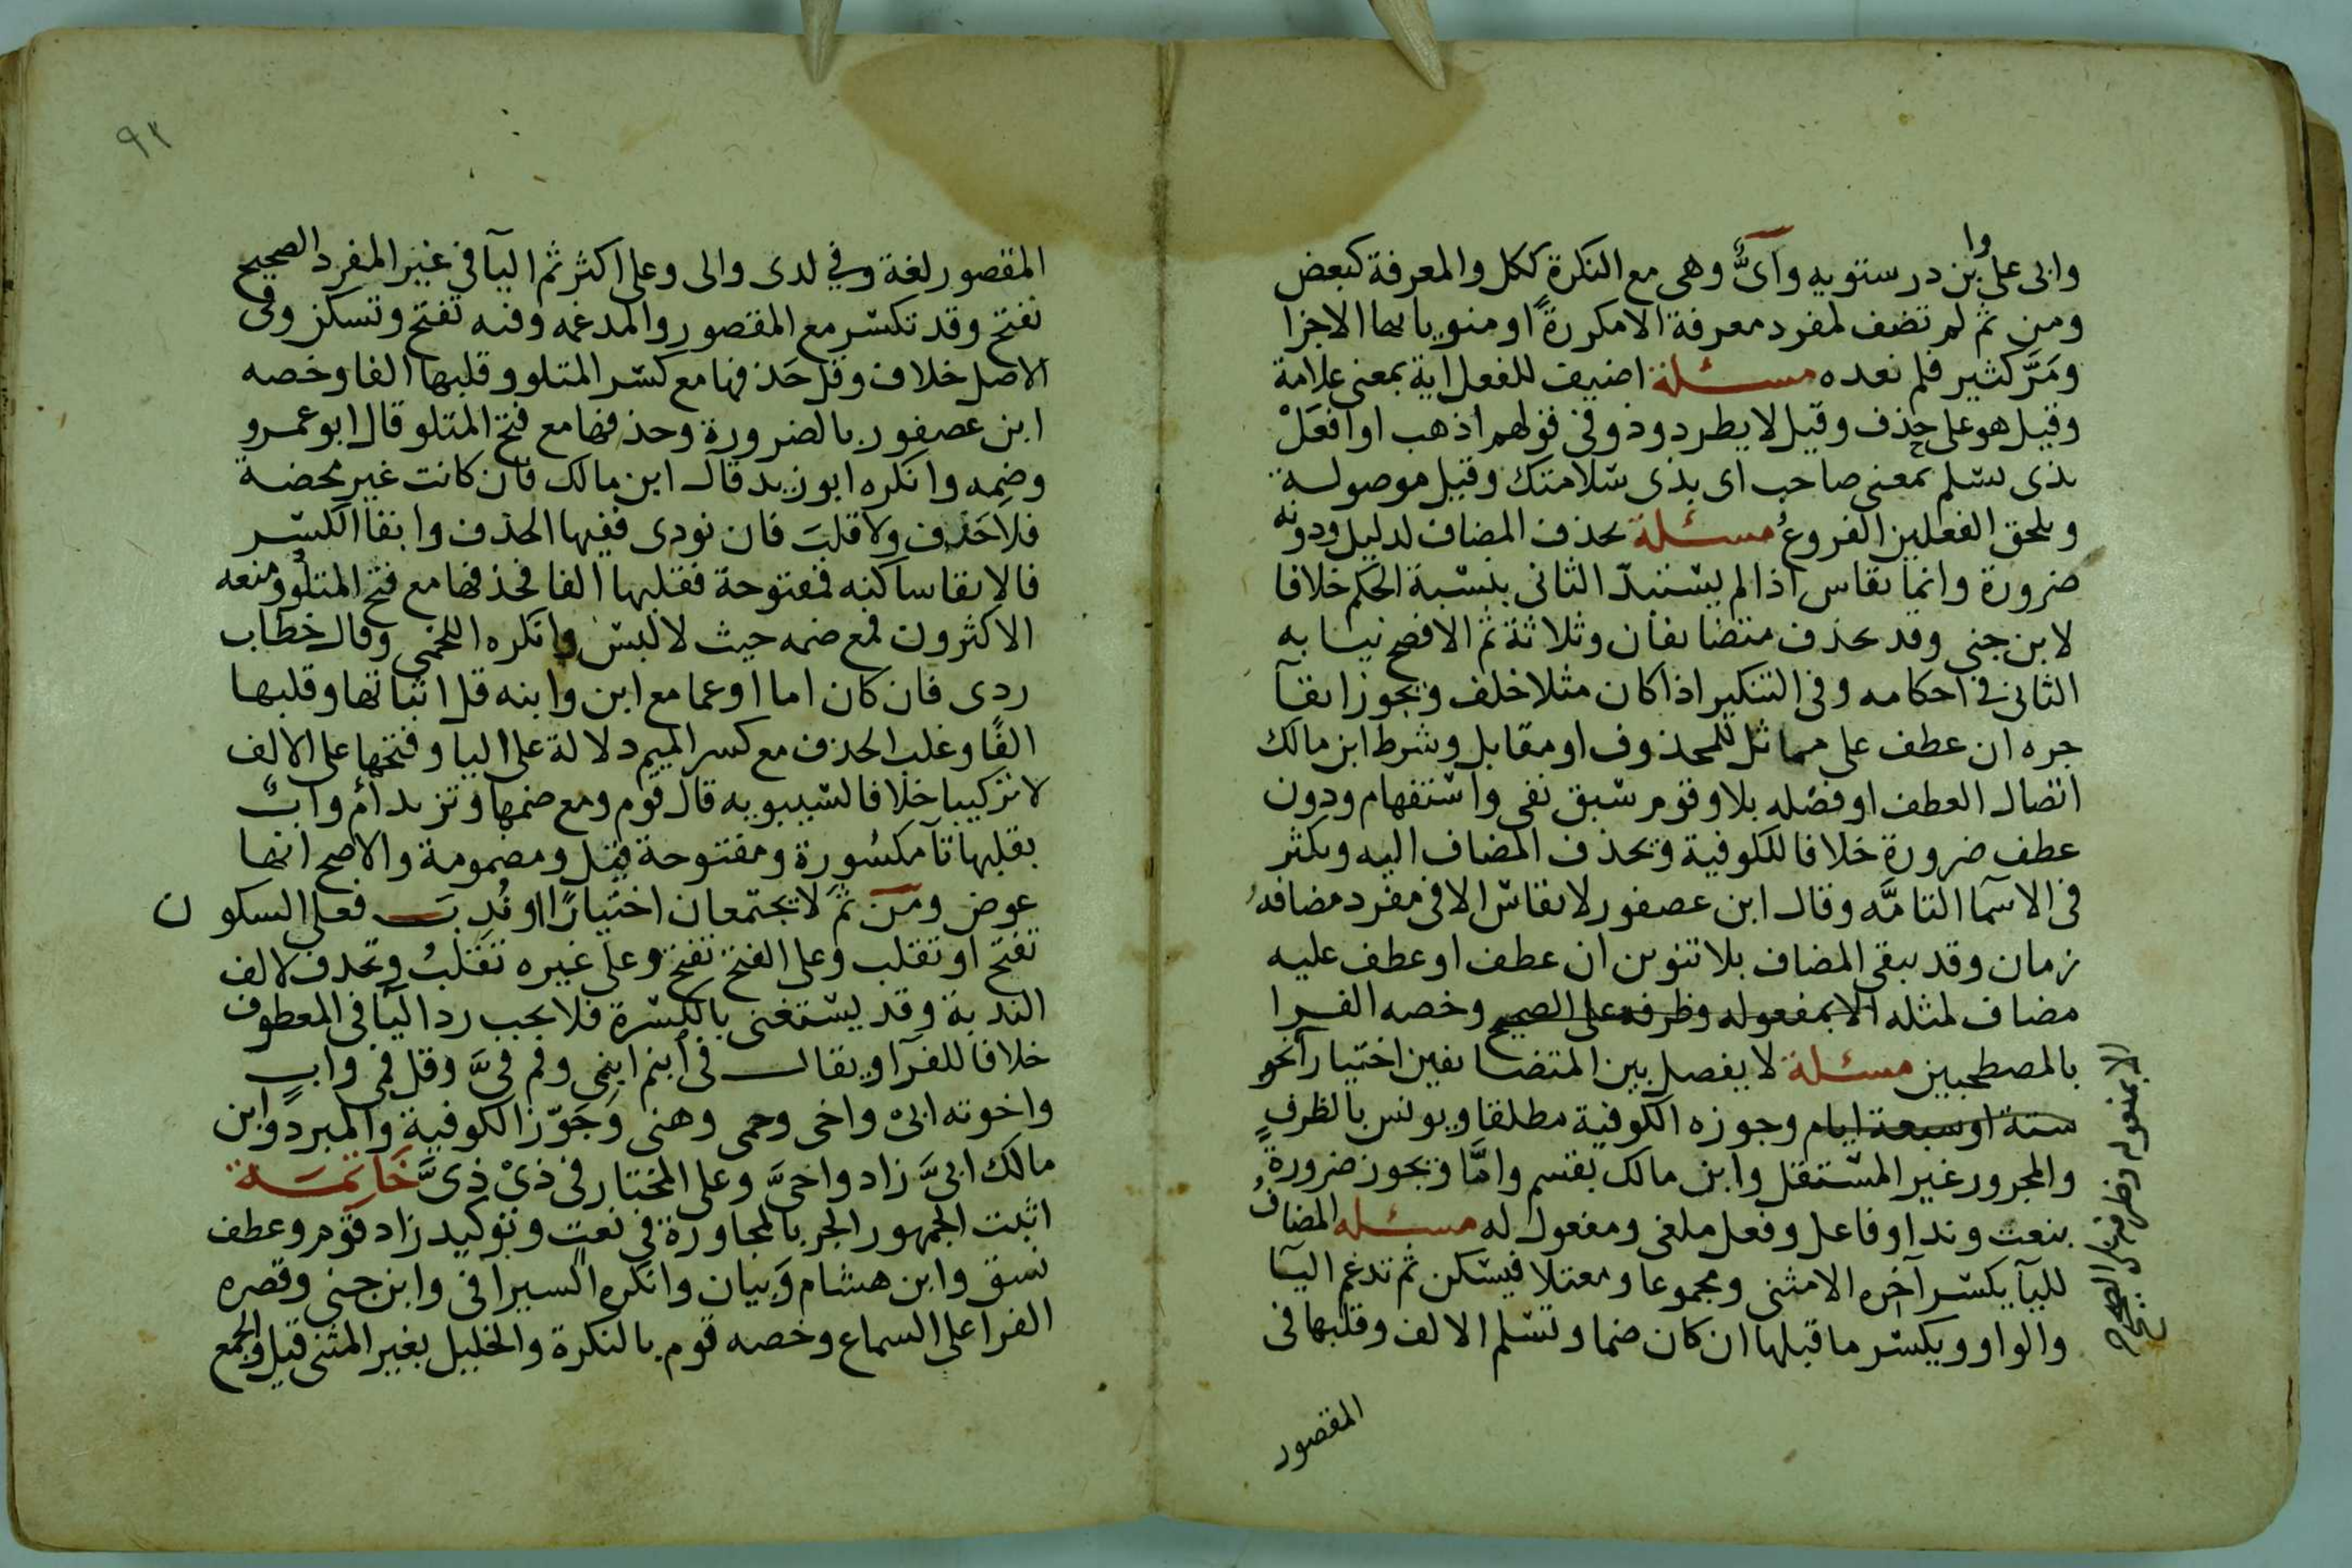 وابى على وابن درستويه وأىٌّ وهى مع النكرة ككل والمعرفة كبعض
ومن ثم لم تضف لمفرد معرفة الا مكررةً او منويا بها الاجزا
ومَرَّ كثير فلم نعده مسئلة اضيف للفعل آية بمعنى علامة
وقيل هو على حذف وقيل لا يطرد وذو فى قولهم اذهب او افعَلْ
بذى تسلم بمعنى صاحب اى بذى سلامتك وقيل موصولة
ويلحق الفعلين الفروعُ مسئلة يحذف المضاف لدليل ودونه
ضرورة وانما يقاس اذا لم يستبدّ الثانى بنسبة الحكم خلافا
لابن جنى وقد يحذف متضايفان وثلاثة ثم الافصح نيابه
الثانى فى احكامه وفى التنكير اذا كان مثلا خلف ويجوز ابقآ
جره ان عطف على مماثل للمحذوف او مقابل وشرط ابن مالك
اتصال العطف او فصله بلا وقوم سبق نفى واستفهام ودون
عطف ضرورة خلافا للكوفية ويحذف المضاف اليه ويكثر
فى الاسمآ التامَّه وقال ابن عصفور لا يقاس الا فى مفرد مضافهُ
زمان وقد يبقى المضاف بلا تنوين ان عطف او عطف عليه
مضاف لمثله الا بمفعوله وظرفه على الصحيح وخصه الفرا
بالمصطحبين مسئلة لا يفصل بين المتضايفين اختيارا نحو
ستة او سبعة ايام وجوزه الكوفية مطلقا ويونس بالظرفِ
والمجرور غير المستقل وابن مالك بقسم وامَّا ويجوز ضرورةً
بنعت وندا وفاعل وفعل ملغى ومفعول له مسئله المضافُ
لليآ يكسر آخره الا مثنى ومجموعا ومعتلا فيسكن ثم تدغم اليآ
والواو ويكسر ما قبلها ان كان ضما وتسلم الالف وقلبها فى
المقصور
الا بمفعوله وظرفه على الصحيح
٩٢
المقصور لغة وفى لدى والى وعلى اكثر ثم اليآ فى غير المفرد الصحيح
تفتح وقد تكسر مع المقصور والمدغمه وفيه تفتح وتسكن وفى
الاصل خلاف وقل حَذفها مع كسر المتلو وقلبها الفا وخصه
ابن عصفور بالضرورة وحذفها مع فتح المتلو قال ابو عمرو
وضمه وانكره ابو زيد قال ابن مالك فان كانت غير محضة
فلا حَذف ولا قلبَ فان نودى ففيها الحذف وابقا الكسر
فالابقا ساكنه فمفتوحة فقلبها الفا فحذفها مع فتح المتلو ومنعه
الاكثرون فمع ضمه حيث لا لبس وانكره اللخمى وقال خطاب
ردى فان كان اما او عما مع ابن وابنه قل اثباتها وقلبها
الفًا وغلب الحذف مع كسر الميم دلالة على اليا وفتحها على الالف
لا تركيبا خلافا لسيبويه قال قوم ومع ضمها وتزيد أم وأبٌ
بقلبها تآ مكسُورة ومفتوحة قيل ومضمومة والاصح انها
عوض ومن ثَمَ لا يجتمعان اختيارًا او نُدِبَت فعلى السكون
تفتح او تقلب وعلى الفتح تفتح وعلى غيره تقلبُ وتحذف لالف
الندبة وقد يستغنى بالكسرة فلا يجب رد اليآ فى المعطوف
خلافا للفرآ ويقال فى ابنم ابنمى وفم فىَّ وقل فمى وابٍ
واخوته ابىْ واخى وحمى وهنى وجَوّز الكوفية والمبرد وابن
مالك ابىَّ زاد واخىَّ وعلى المختار فى ذىْ ذىَّ خَاتِمَة
اثبت الجمهور الجر بالمجاورة فى نعتٍ وتوكيد زاد قوم وعطف
نسق وابن هشام وَبيان وانكره السيرافى وابن جنى وقصره
الفرا على السماع وخصه قوم بالنكرة والخليل بغير المثنى قيل والجمع